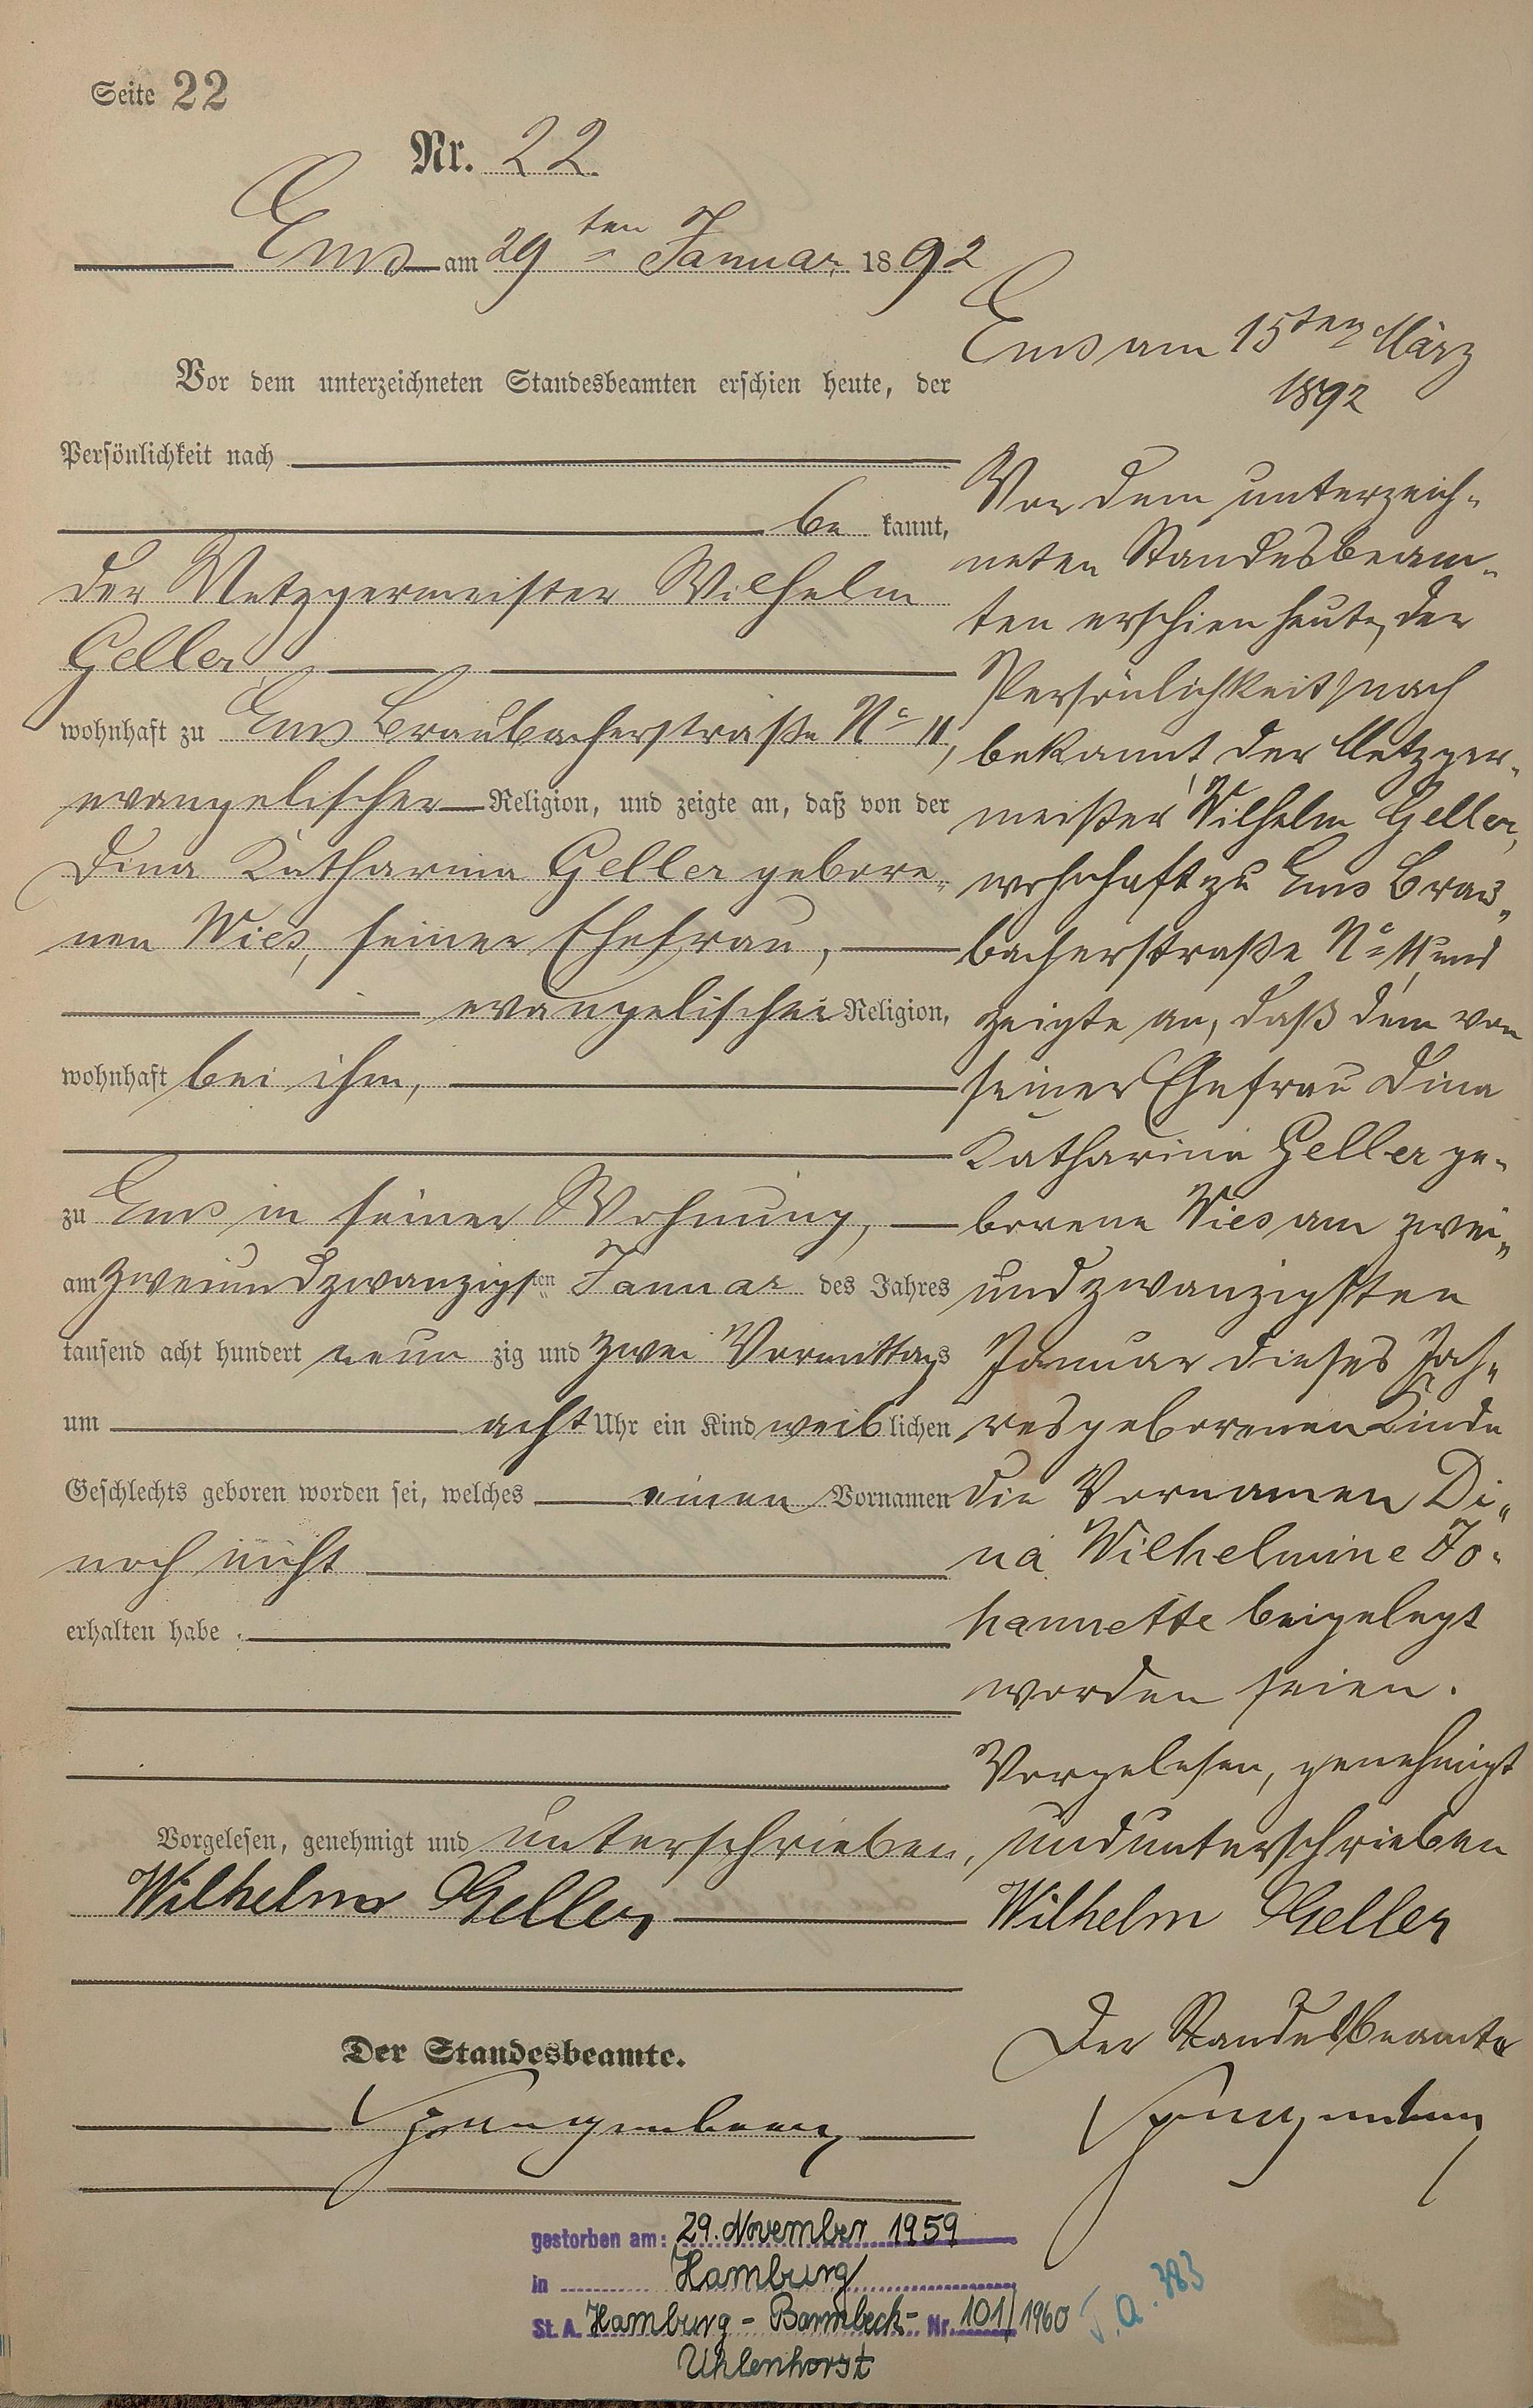 Seite 22
Nr. 22.
Ems am 29ten Januar 1892
Vor dem unterzeichneten Standesbeamten erschien heute, der
Persönlichkeit nach
be kannt,
der Metzgermeister Wilhelm
Geller,
wohnhaft zu Ems Braubacherstraße No 11,
evangelischer Religion, und zeigte an, daß von der
Dina Katharina Geller gebore-
nen Wies, seiner Ehefrau,
evangelischer Religion,
wohnhaft bei ihm,
zu Ems in seiner Wohnung,
am zweiundzwanzigsten Januar des Jahres
tausend acht hundert neun zig und zwei Vormittags
um acht Uhr ein Kind weiblichen
Geschlechts geboren worden sei, welches einen Vornamen
noch nicht
erhalten habe.
Vorgelesen, genehmigt und unterschrieben,
Wilhelm Geller
Der Standesbeamte.
Ems am 15ten März
1892
Vor dem unterzeich-
neten Standesbeam-
ten erschien heute, der
Persönlichkeit nach
bekannt der Metzger-
meister Wilhelm Geller,
wohnhaft zu Ems Brau-
bacherstraße No 11 und
zeigte an, daß dem von
seiner Ehefrau Dina
Katharina Geller ge-
borene Wies am zwei-
undzwanzigsten
Januar dieses Jah-
res geborenen Kinde
die Vornamen Di-
na Wilhelmine Jo-
hannette beigelegt
worden seien.
Vorgelesen, genehmigt
und unterschrieben
Wilhelm Geller
Der Standesbeamte
gestorben am: 29. November 1959
in Hamburg
St. A. Hamburg-Barmbeck- Nr. 101/1960
Uhlenhorst